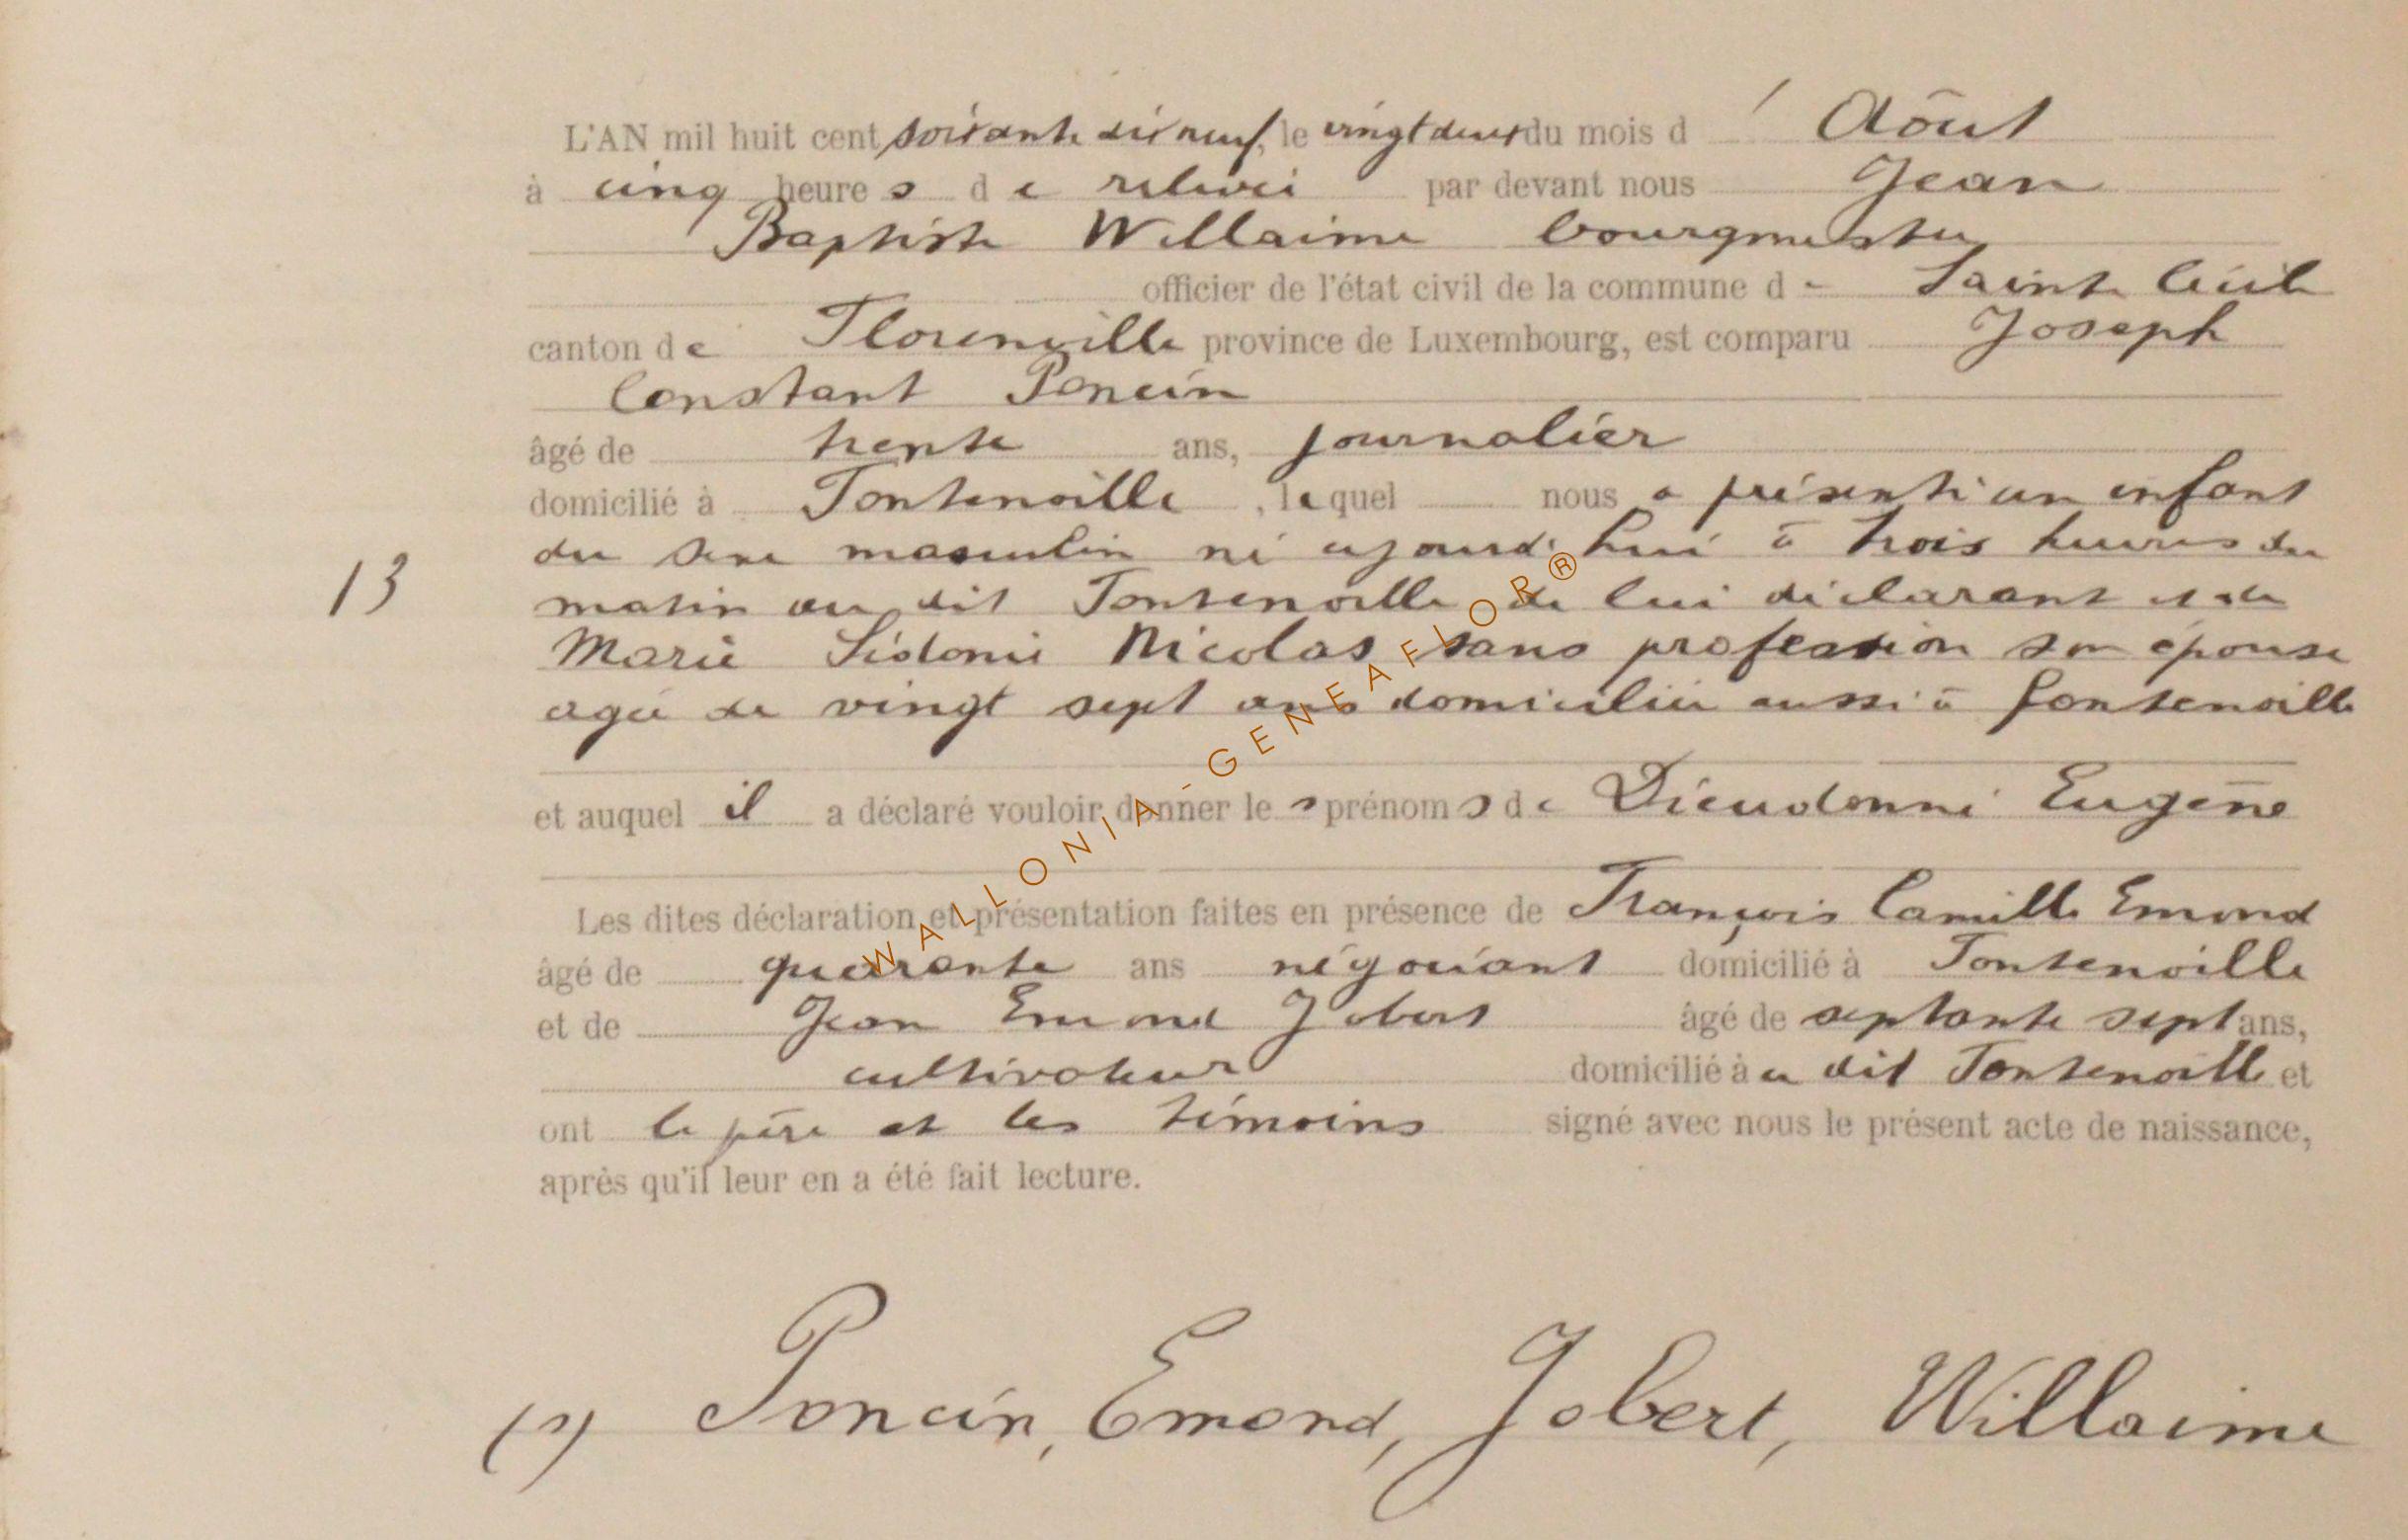 L'AN mil huit cent soixante dix neuf, le vingt deux du mois d' Août
à cinq heures de relevée par devant nous Jean
Baptiste Willaime bourgmestre
officier de l'état civil de la commune de Sainte Cécile
canton de Florenville province de Luxembourg, est comparu Joseph
Constant Poncin
âgé de trente ans, journalier
domicilié à Fontenoille, lequel nous a présenté un enfant
du sexe masculin né aujourd'hui à trois heures du
13
matin au dit Fontenoille de lui déclarant et de
Marie Sidonie Nicolas sans profession son épouse
agée de vingt sept ans domiciliée aussi à fontenoille
et auquel il a déclaré vouloir donner les prénoms de Dieudonné Eugène
Les dites déclaration et présentation faites en présence de François Camille Emond
âgé de quarante ans négociant domicilié à Fontenoille
et de Jean Emond Jobert âgé de septante sept ans,
cultivateur domicilié au dit Fontenoille et
ont le père et les témoins signé avec nous le présent acte de naissance,
après qu'il leur en a été fait lecture.
Poncin, Emond, Jobert, Willaime
WALLONIA-GENEAFLOR®